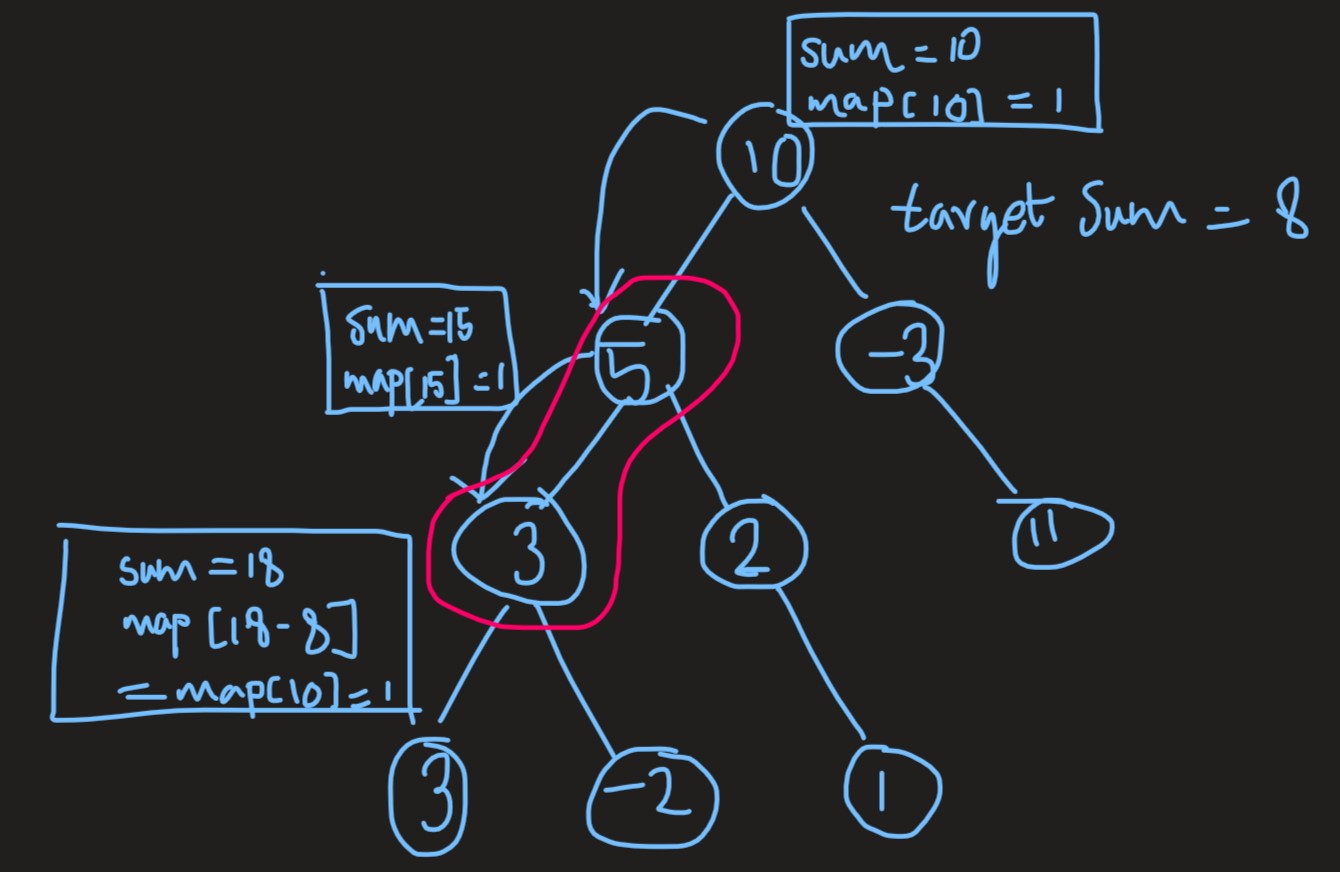 sum = 10
map[10] = 1
10
target Sum = 8
Sum=15
map[15] = 1
5
-3
sum = 18
map [18-8]
= map[10] = 1
3
2
11
3
-2
1